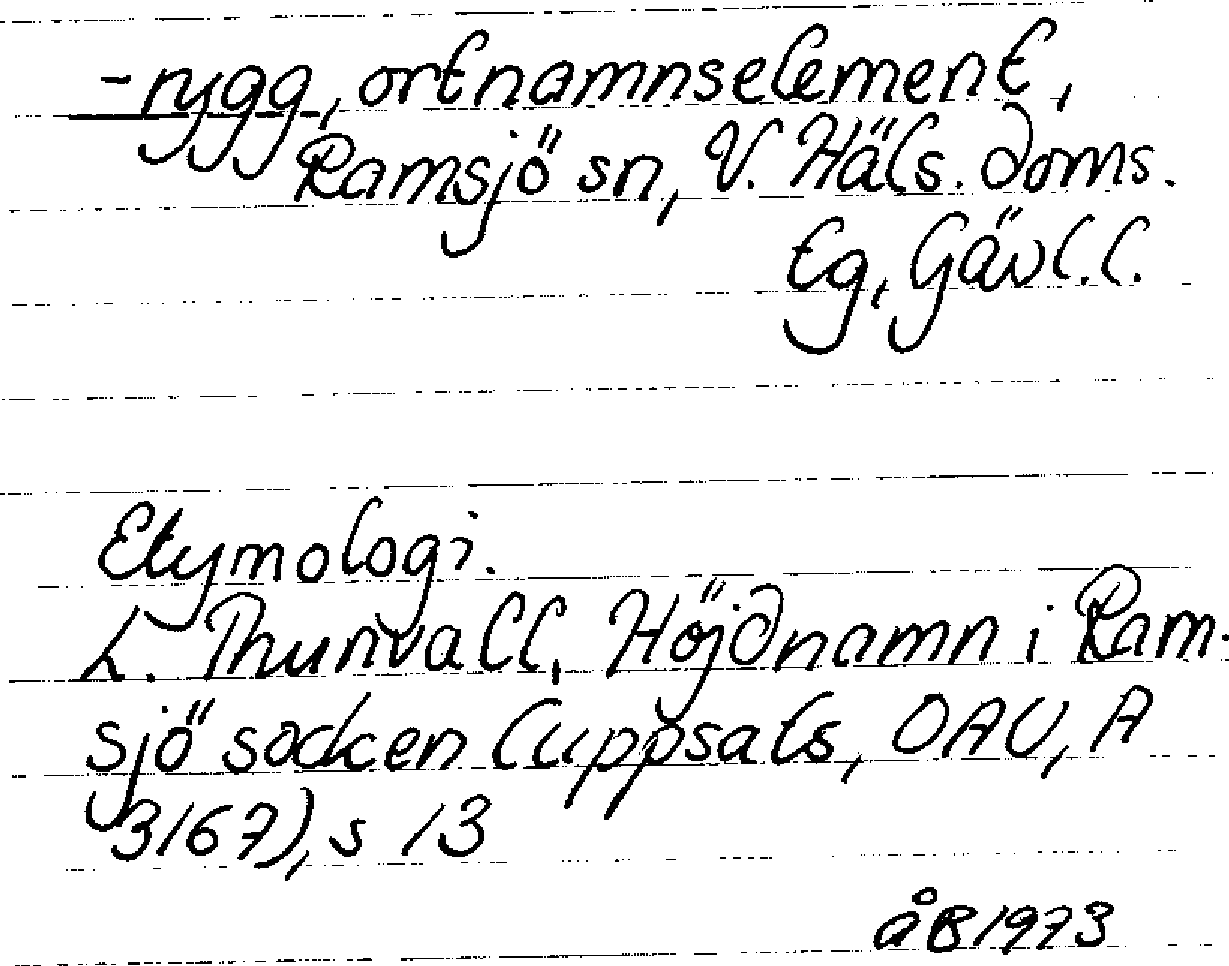 -rygg, ortnamnselement,
Ramsjö sn, V. Häls. doms.
Eg, Gävl.l.
Etymologi.
L. Thunvall, Höjdnamn i Ram-
sjö socken (uppsats, OAU, A
3167), s 13
åB1973